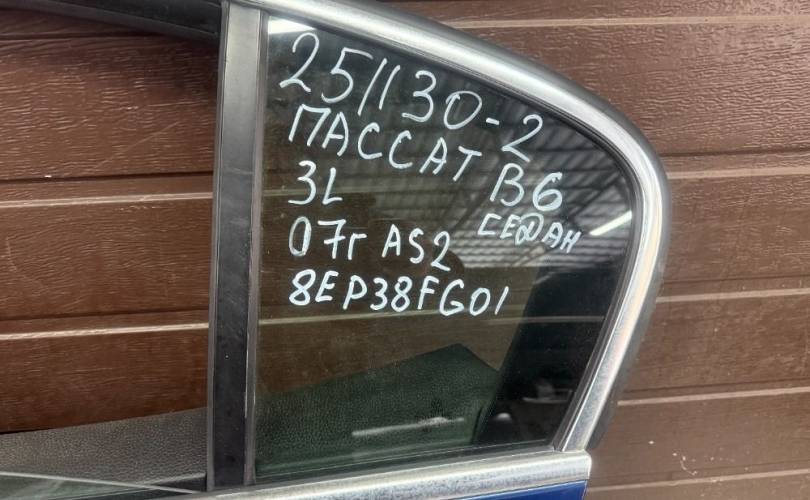 251130-2
ПАССАТ B6
3L СЕДАН
07г AS2
8EP38FG01